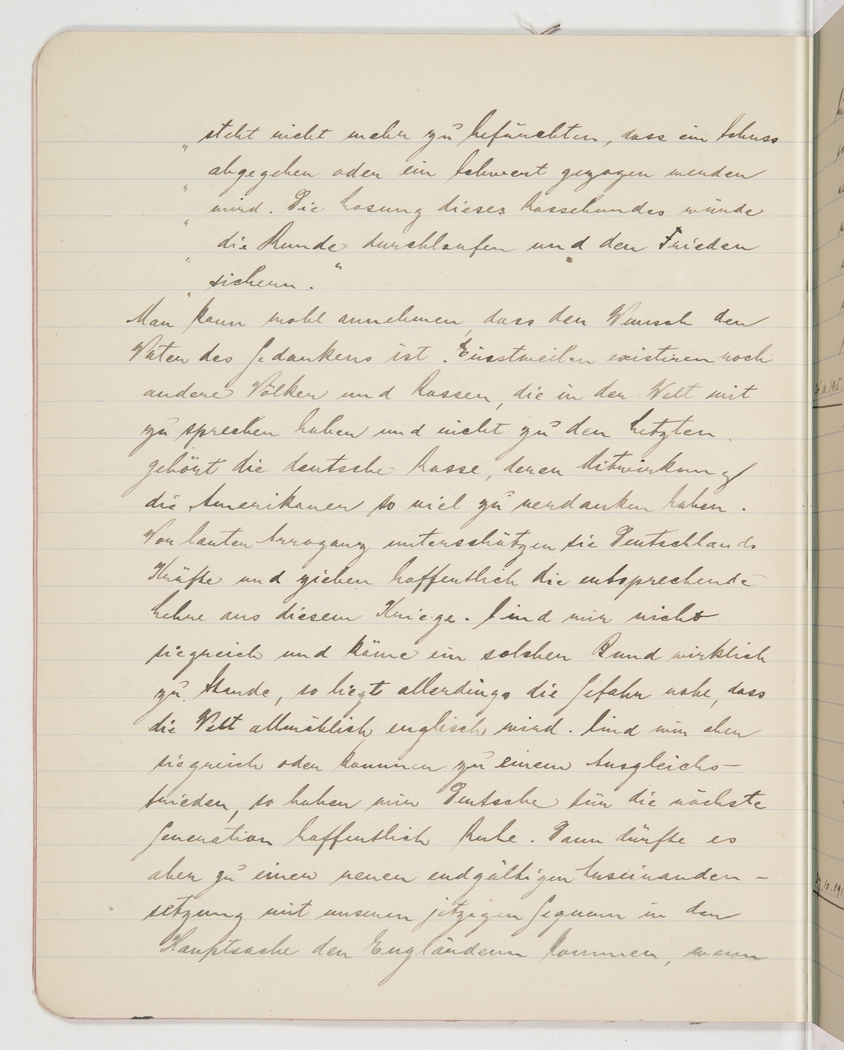 „ steht nicht mehr zu befürchten, dass ein Schuss
„ abgegeben oder ein Schwert gezogen werden
„ wird. Die Losung dieses Rassebundes würde
„ die Runde durchlaufen und den Frieden
„ sichern."
Man kann wohl annehmen, dass der Wunsch der
Vater des Gedankens ist. Einstweilen existiren noch
andere Völker und Rassen, die in der Welt mit
zu sprechen haben und nicht zu den Letzten
gehört die deutsche Rasse, deren Mitwirkung
die Amerikaner so viel zu verdanken haben.
Vor lauter Arroganz unterschätzen sie Deutschlands
Kräfte und ziehen hoffentlich die entsprechende
Lehre aus diesem Kriege. Sind wir nicht
siegreich und käme ein solcher Bund wirklich
zu Stande, so liegt allerdings die Gefahr nahe, dass
die Welt allmählich englisch wird. Sind wir aber
siegreich oder kommen zu einem Ausgleichs-
frieden, so haben wir Deutsche für die nächste
Generation hoffentlich Ruhe. Dann dürfte es
aber zu einer neuen endgültigen Auseinander-
setzung mit unseren jetzigen Gegnern in der
Hauptsache den Engländern kommen, wenn